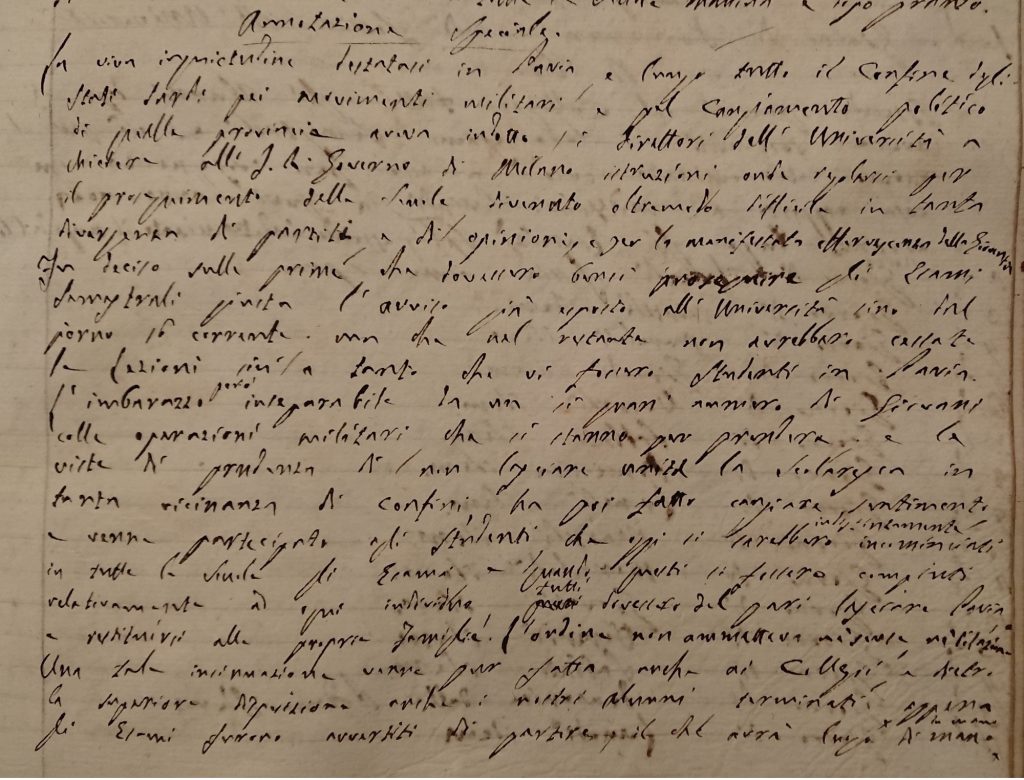 tutte le Scuole mattina e dopo pranzo.
Annotazione Speciale.
La viva inquietudine destatasi in Pavia, e lungo tutto il Confine degli
Stati Sardi pei movimenti militari e pel Cangiamento politico
di quella provincia aveva indotto i Direttori dell' Università a
chiedere all' I. R. Governo di Milano istruzioni onde regolarsi per
il proseguimento delle Scuole divenuto oltremodo difficile in tanta
divergenza di partiti, e di opinioni, e per la manifestata effervescenza della Gioventù
Fu deciso sulle prime che dovessero bensì proseguire gli Esami
Semestrali giusta l' avviso già esposto all' Università sino dal
giorno 16 corrente. ma che nel restante non avrebbero cessate
le Lezioni sin a tanto che vi fossero Studenti in Pavia.
L' imbarazzo però inseparabile da un sì gran numero di Giovani
colle operazioni militari che si stanno per prendere. e le
viste di prudenza di non lasciare unita la Scolaresca in
tanta vicinanza di confini ha poi fatto cangiare sentimento
e venne partecipato agli Studenti che oggi si sarebbero incominciati
in tutte le Scuole gli Esami e quando questi si fossero compiuti
relativamente ad ogni individuo, tutti dovessero del pari lasciare Pavia
e restituirsi alle proprie famiglie. L'ordine non ammetteva nessuna
Una tale insinuazione venne pur fatta anche ai Collegi, e dietro
la superiore disposizione anche i nostri alunni terminati appena
gli Esami furono avvertiti di partire, il che avrà luogo di mano in mano